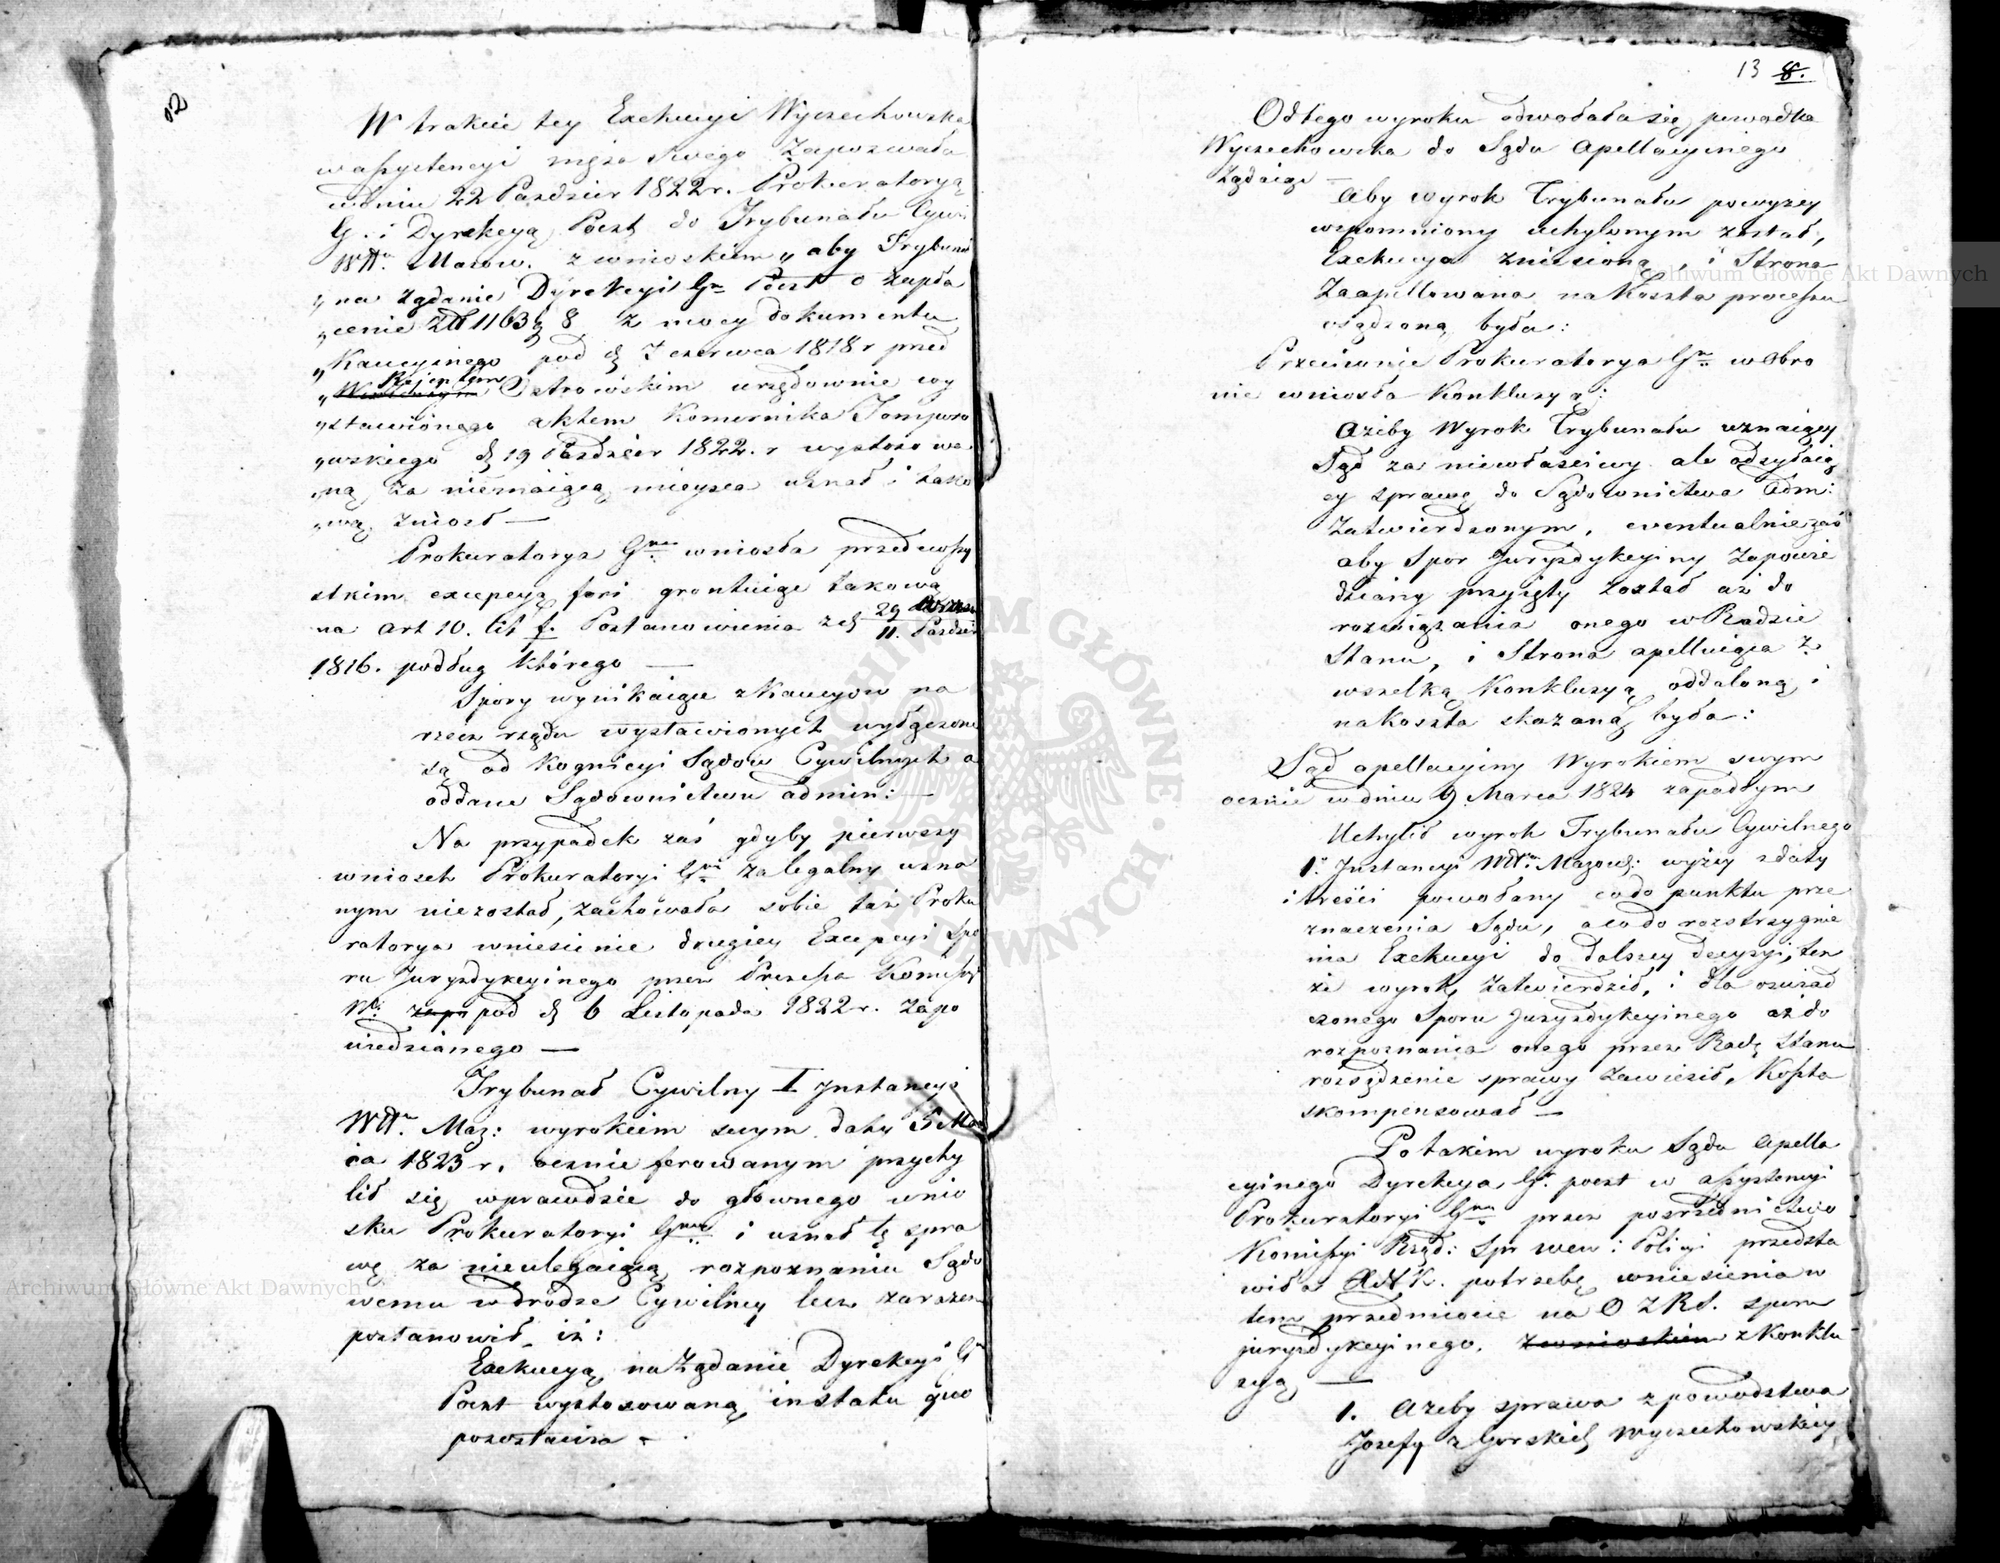 12
W trakcie tey Exekucyi Wyczechowska
w assystencyi męża swego Zapozwała
w dniu 22 Paździer 1822 r. Prokuratoryą
G. i Dyrekcyą Poczt do Trybunału Cywi
Wtwa Mazow. z wnioskiem „aby Trybunał
„na żądanie Dyrekcyi Gn Poczt o zapła
„cenie Zł 1163 g 8 z mocy dokumentu
„Kaucyinego pod d 7 czerwca 1818 r przed
„Rejentem Ostrowskim urzędownie wy
„stawionego aktem Komornika Tomporo
„wskiego d 19 Paździer 1822. r wystosowa
„ną za niemaiącą mieysca uznał i tako
„wą zniosł —
Prokuratorya Gna wniosła przedewszy
stkim excepcyą fori gruntuiąc takową
na Art 10. lit f. Postanowienia z d 29 Wrześn / 11. Paździer
1816. podług którego —
Spory wynikaiące z Kaucyow na
rzecz rządu wystawionych wyłączone
są od Kognicyi Sądow Cywilnych a
oddane Sądownictwu admin: —
Na przypadek zaś gdyby pierwszy
wniosek Prokuratoryi Gni za legalny uzna
nym niezostał, zachowała sobie taż Proku
ratorya wniesienie drugiey Excepcyi Spo
ru Jurysdykcyinego przez Prezesa Komissyi
Wi zapo pod d 6 Listopada 1822 r. zapo
wiedzianego —
Trybunał Cywilny I Instancyi
Wtwa Maz: wyrokiem swym daty 5 Mar
ca 1823 r. ocznie ferowanym przychy
lił się wprawdzie do głównego wnio
sku Prokuratoryi Gney i uznał tę spra
wę za nieulegaiącą rozpoznaniu Sądo
wemu w drodze Cywilney lecz zarazem
postanowił, iż:
Exekucyą na Żądanie Dyrekcyi Gn
Poczt wystosowaną, in statu quo
pozostawia —
13 8.
Od tego wyroku odwołała się powodka
Wyczechowska do Sądu Apellacyinego
Żądaiąc —
Aby wyrok Trybunału powyzey
wspomniony uchylonym został,
Exekucya zniesioną, i Strona
Zaapellowana na Koszta processu
osądzoną była:
Przeciwnie Prokuratorya Gn w obro
nie wniosła Konkluzyą:
Ażeby Wyrok Trybunału uznaiący
Sąd za niewłaściwy ale odsyłaią
cy sprawę do Sądownictwa Adm:
Zatwierdzonym, eventualnie zaś
aby Spor Jurysdykcyiny Zapowie
dziany przyięty został aż do
rozwiązania onego w Radzie
Stanu, i Strona apelluiąca z
wszelką Konkluzyą oddaloną i
na Koszta skazaną była:
Sąd apellacyiny Wyrokiem swym
ocznie w dniu 9 Marca 1824 zapadłym
Uchylił wyrok Trybunału Cywilnego
1. Instancyi Wtwa Mazow: wyżey z daty
i treści powołany co do punktu prze
znaczenia Sądu, a co do rozstrzygnie
nia Exekucyi do dalszey decyzyi, ten
że wyrok zatwierdził, i dla oświad
czonego Sporu Jurysdykcyinego aż do
rozpoznania onego przez Radę Stanu
rozsądzenie sprawy zawiesił, Koszta
skompensował —
Po takim wyroku Sądu Apella
cyinego Dyrekcya G. poczt w assystencyi
Prokuratoryi Gney przez pośrednictwo
Komissyi Rząd: Spr wew: i Policyi przedsta
wiła RAK. potrzebę wniesienia w
tem przedmiocie na O Z R S. sporu
jurysdykcyinego, z wnioskiem z Konklu
zyą —
1. Ażeby sprawa z powodztwa
Jozefy z Gorskich Wyczechowskiey
Archiwum Główne Akt Dawnych
Archiwum Główne Akt Dawnych
ARCHIWUM GŁÓWNE AKT DAWNYCH